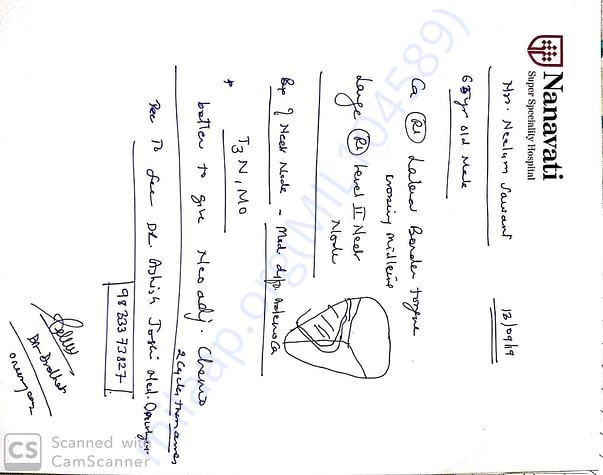 Nanavati
Super Speciality Hospital
Mrs. Neelum Sawant
12/09/19
65yr old Male
Ca (Rt) Lateral Border tongue
crossing midline
Large (Rt) Level II Neck
Node
Bxp of Neck Node - Mod diff. AdenoCa
T3N1M0
better to give Neoadj. Chemo
2 cycles then assess
To see DR Ashish Joshi Med. Oncologist
9833373827
milaap.org(MIL104589)
CS Scanned with
CamScanner